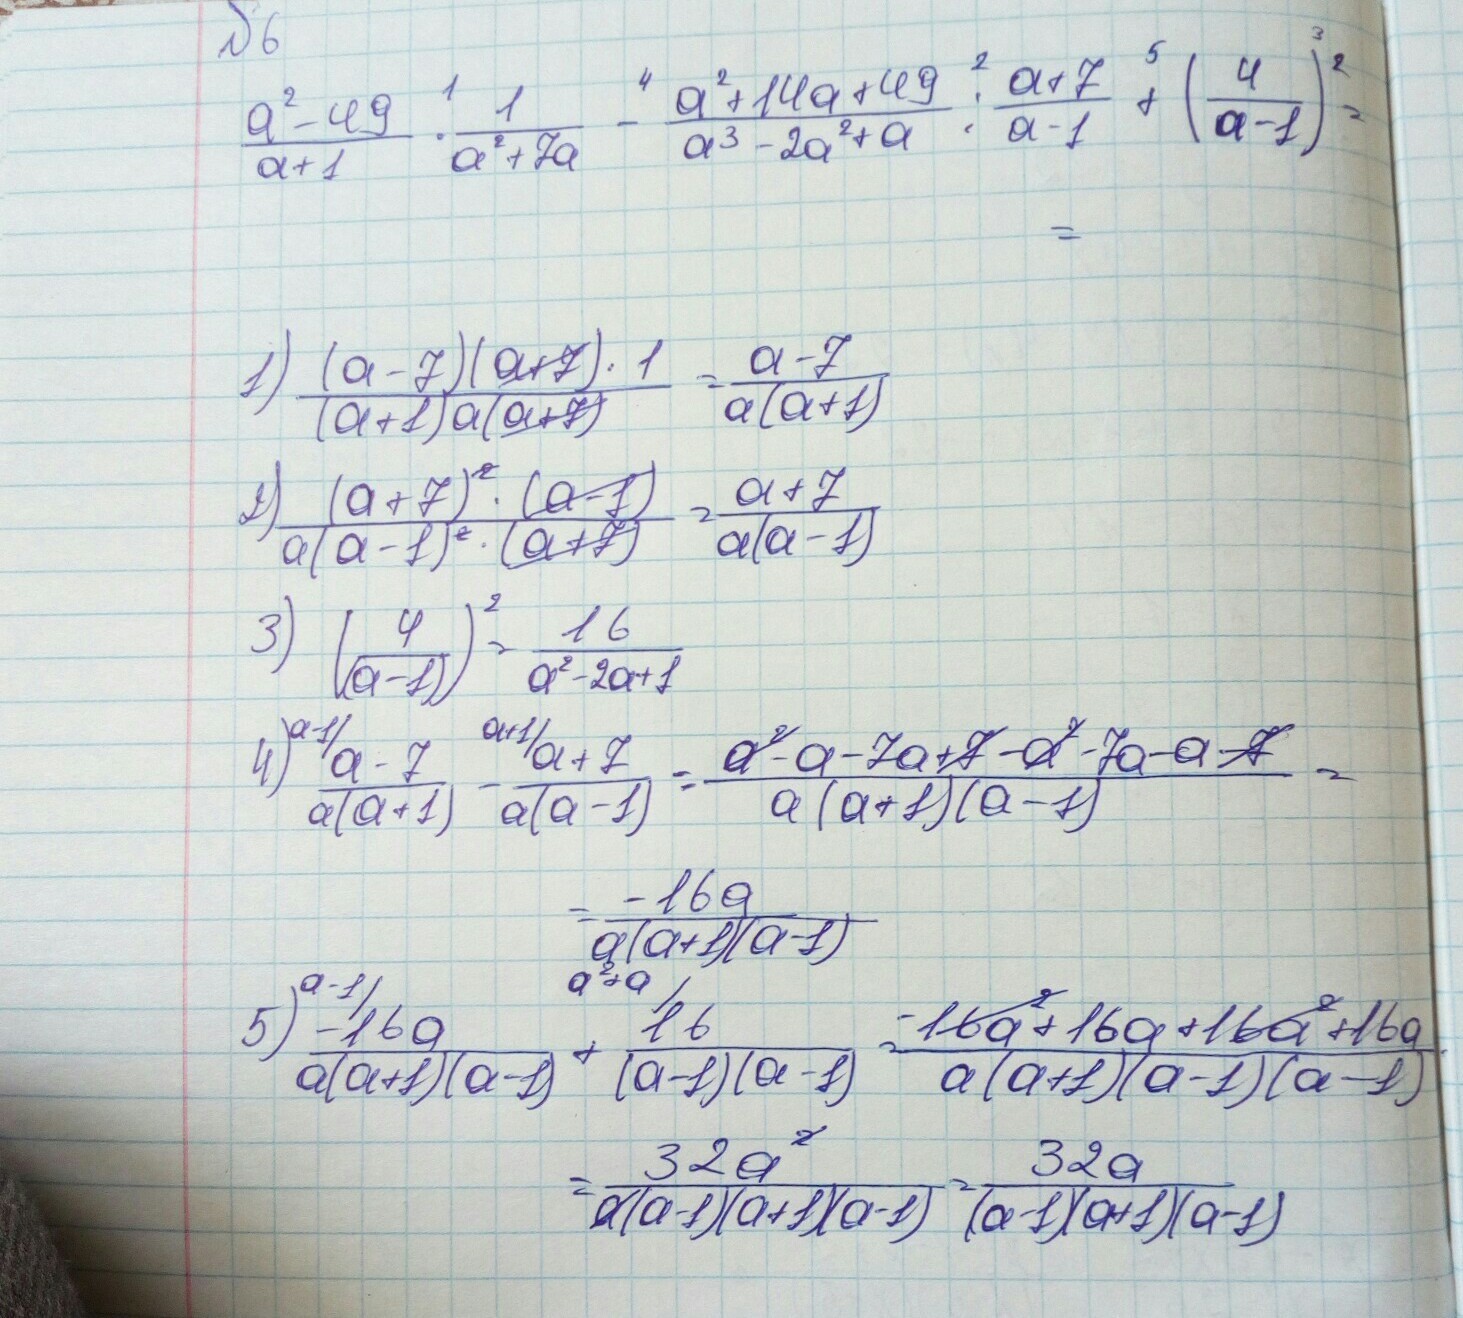 №6
\frac{a^2-49}{a+1} \overset{1}{\cdot} \frac{1}{a^2+7a} \overset{4}{-} \frac{a^2+14a+49}{a^3-2a^2+a} \overset{2}{:} \frac{a+7}{a-1} \overset{5}{+} \left(\frac{4}{a-1}\right)^{\overset{3}{2}} =
=
1) \frac{(a-7)(a+7)\cdot 1}{(a+1)a(a+7)} = \frac{a-7}{a(a+1)}
2) \frac{(a+7)^2\cdot(a-1)}{a(a-1)^2\cdot(a+7)} = \frac{a+7}{a(a-1)}
3) \left(\frac{4}{(a-1)}\right)^2 = \frac{16}{a^2-2a+1}
4) ^{a-1/}\frac{a-7}{a(a+1)} - ^{a+1/}\frac{a+7}{a(a-1)} = \frac{a^2-a-7a+7-a^2-7a-a-7}{a(a+1)(a-1)} =
= \frac{-16a}{a(a+1)(a-1)}
5) ^{a-1/}\frac{-16a}{a(a+1)(a-1)} + ^{a^2+a/}\frac{16}{(a-1)(a-1)} = \frac{-16a^2+16a+16a^2+16a}{a(a+1)(a-1)(a-1)}
= \frac{32a^2}{a(a-1)(a+1)(a-1)} = \frac{32a}{(a-1)(a+1)(a-1)}